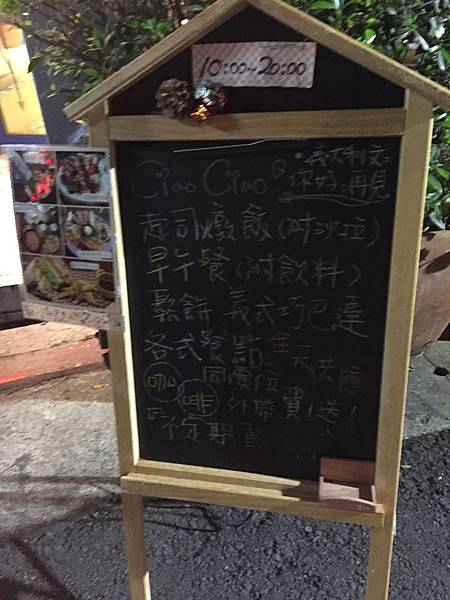 10:00~20:00
·義大利文=
Ciao Ciao?
你好;再見
起司燉飯(附沙拉)
早午餐(附飲料)
鬆餅.義式巧巴達
各式餐點。全天供應
咖啡 同價位
外帶買1送1
不定期